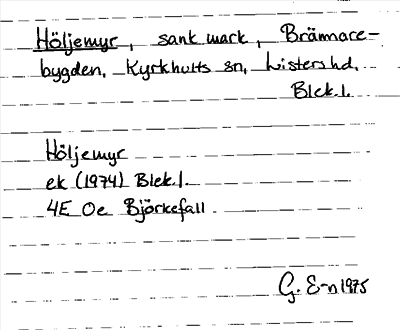 Höljemyr, sank mark, Brännare-
bygden, Kyrkhults sn, Listers hd.
Blek.l.
Höljemyr
ek (1974) Blek.l.
4E Oe Björkefall.
G. E-n 1975